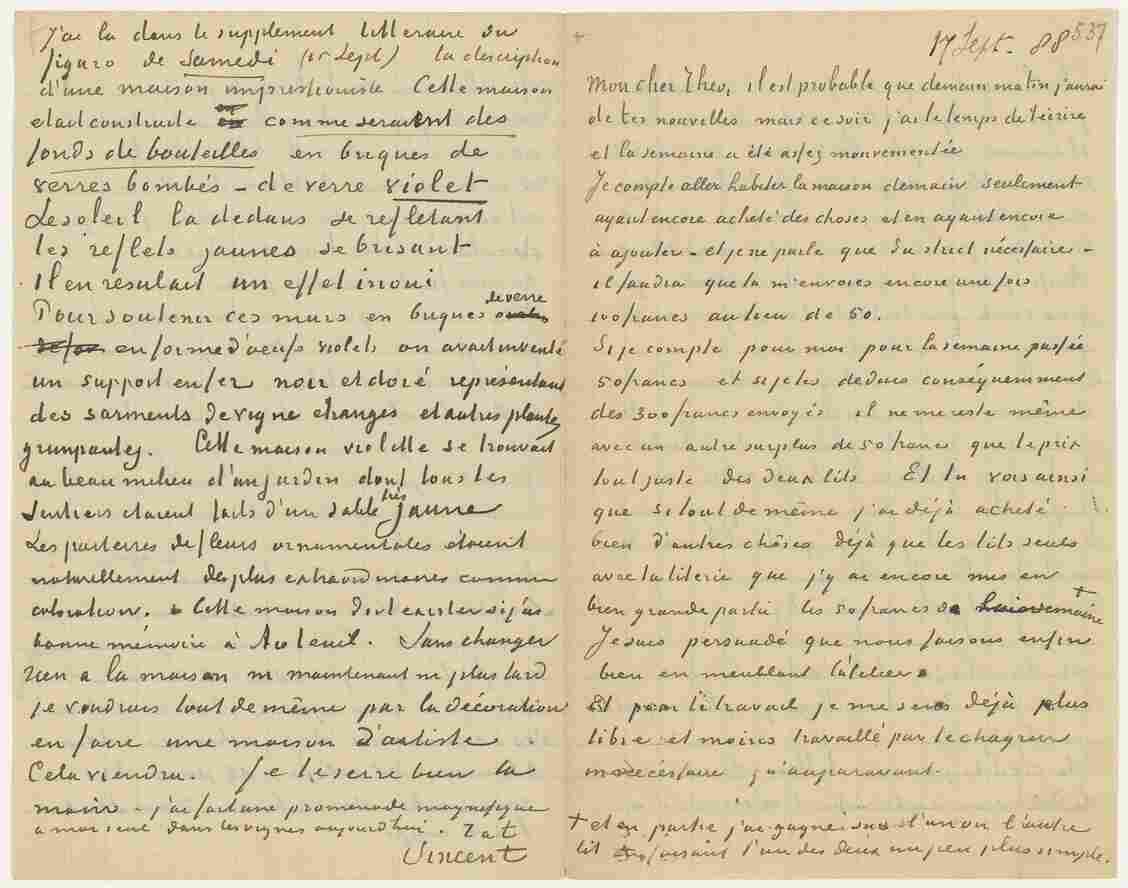 J'ai lu dans le supplement litteraire du
figaro de Samedi (15 Sept) la description
d'une maison impressioniste Cette maison
etait construite en comme seraient des
fonds de bouteilles en briques de
verres bombés – de verre violet
Le soleil la dedans se refletant
les reflets jaunes se brisant
Il en resultait un effet inoui
Pour soutenir ces murs en briques de verre
en forme d'oeufs violets on avait inventé
un support en fer noir et doré représentant
des sarments de vigne etranges et autres plantes
grimpantes. Cette maison violette se trouvait
au beau milieu d'un jardin dont tous les
Sentiers etaient faits d'un sable très jaune
Les parterres de fleurs ornamentales étaient
naturellement des plus extraordinaires comme
coloration. Cette maison doit exister si j'ai
bonne mémoire à Auteuil. Sans changer
rien a la maison ni maintenant ni plus tard
je voudrais tout de même par la décoration
en faire une maison d'artiste.
Cela viendra. Je te serre bien la
main – j'ai fait une promenade magnifique
a moi seul dans les vignes aujourd'hui. t. à t.
Vincent
17 Sept. 88 537
Mon cher Theo, il est probable que demain matin j'aurai
de tes nouvelles mais ce soir j'ai le temps de t'écrire
et la semaine a été assez mouvementée
Je compte aller habiter la maison demain seulement
ayant encore acheté des choses et en ayant encore
à ajouter – et je ne parle que du strict nécessaire –
il faudra que tu m'envoies encore une fois
100 francs au lieu de 50.
Si je compte pour moi pour la semaine passée
50 francs et si je les deduis conséquemment
des 300 francs envoyés il ne me reste même
avec un autre surplus de 50 francs que le prix
tout juste des deux lits Et tu vois ainsi
que si tout de même j'ai déjà acheté
bien d'autres chôses déjà que les lits seuls
avec la literie que j'y ai encore mis en
bien grande partie les 50 francs de la semaine +
Je suis persuadé que nous faisons enfin
bien en meublant l'atelier.
Et pour le travail je me sens déjà plus
libre et moins travaillé par le chagrin
innécéssaire qu'auparavant.
+ et en partie j'ai gagné sur l'un ou l'autre
lit en faisant l'un des deux un peu plus simple.